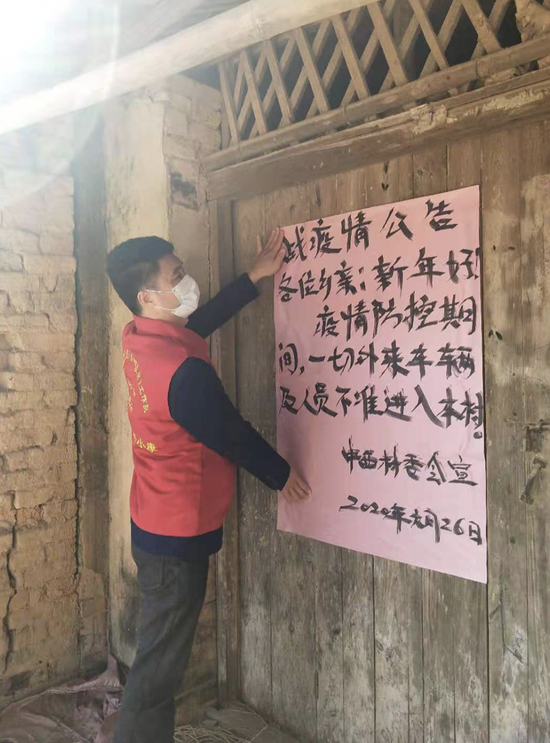 战疫情公告
各位乡亲:新年好!
疫情防控期
间,一切外来车辆
及人员不准进入本村!
中西村委会宣
2020年元月26日
小康